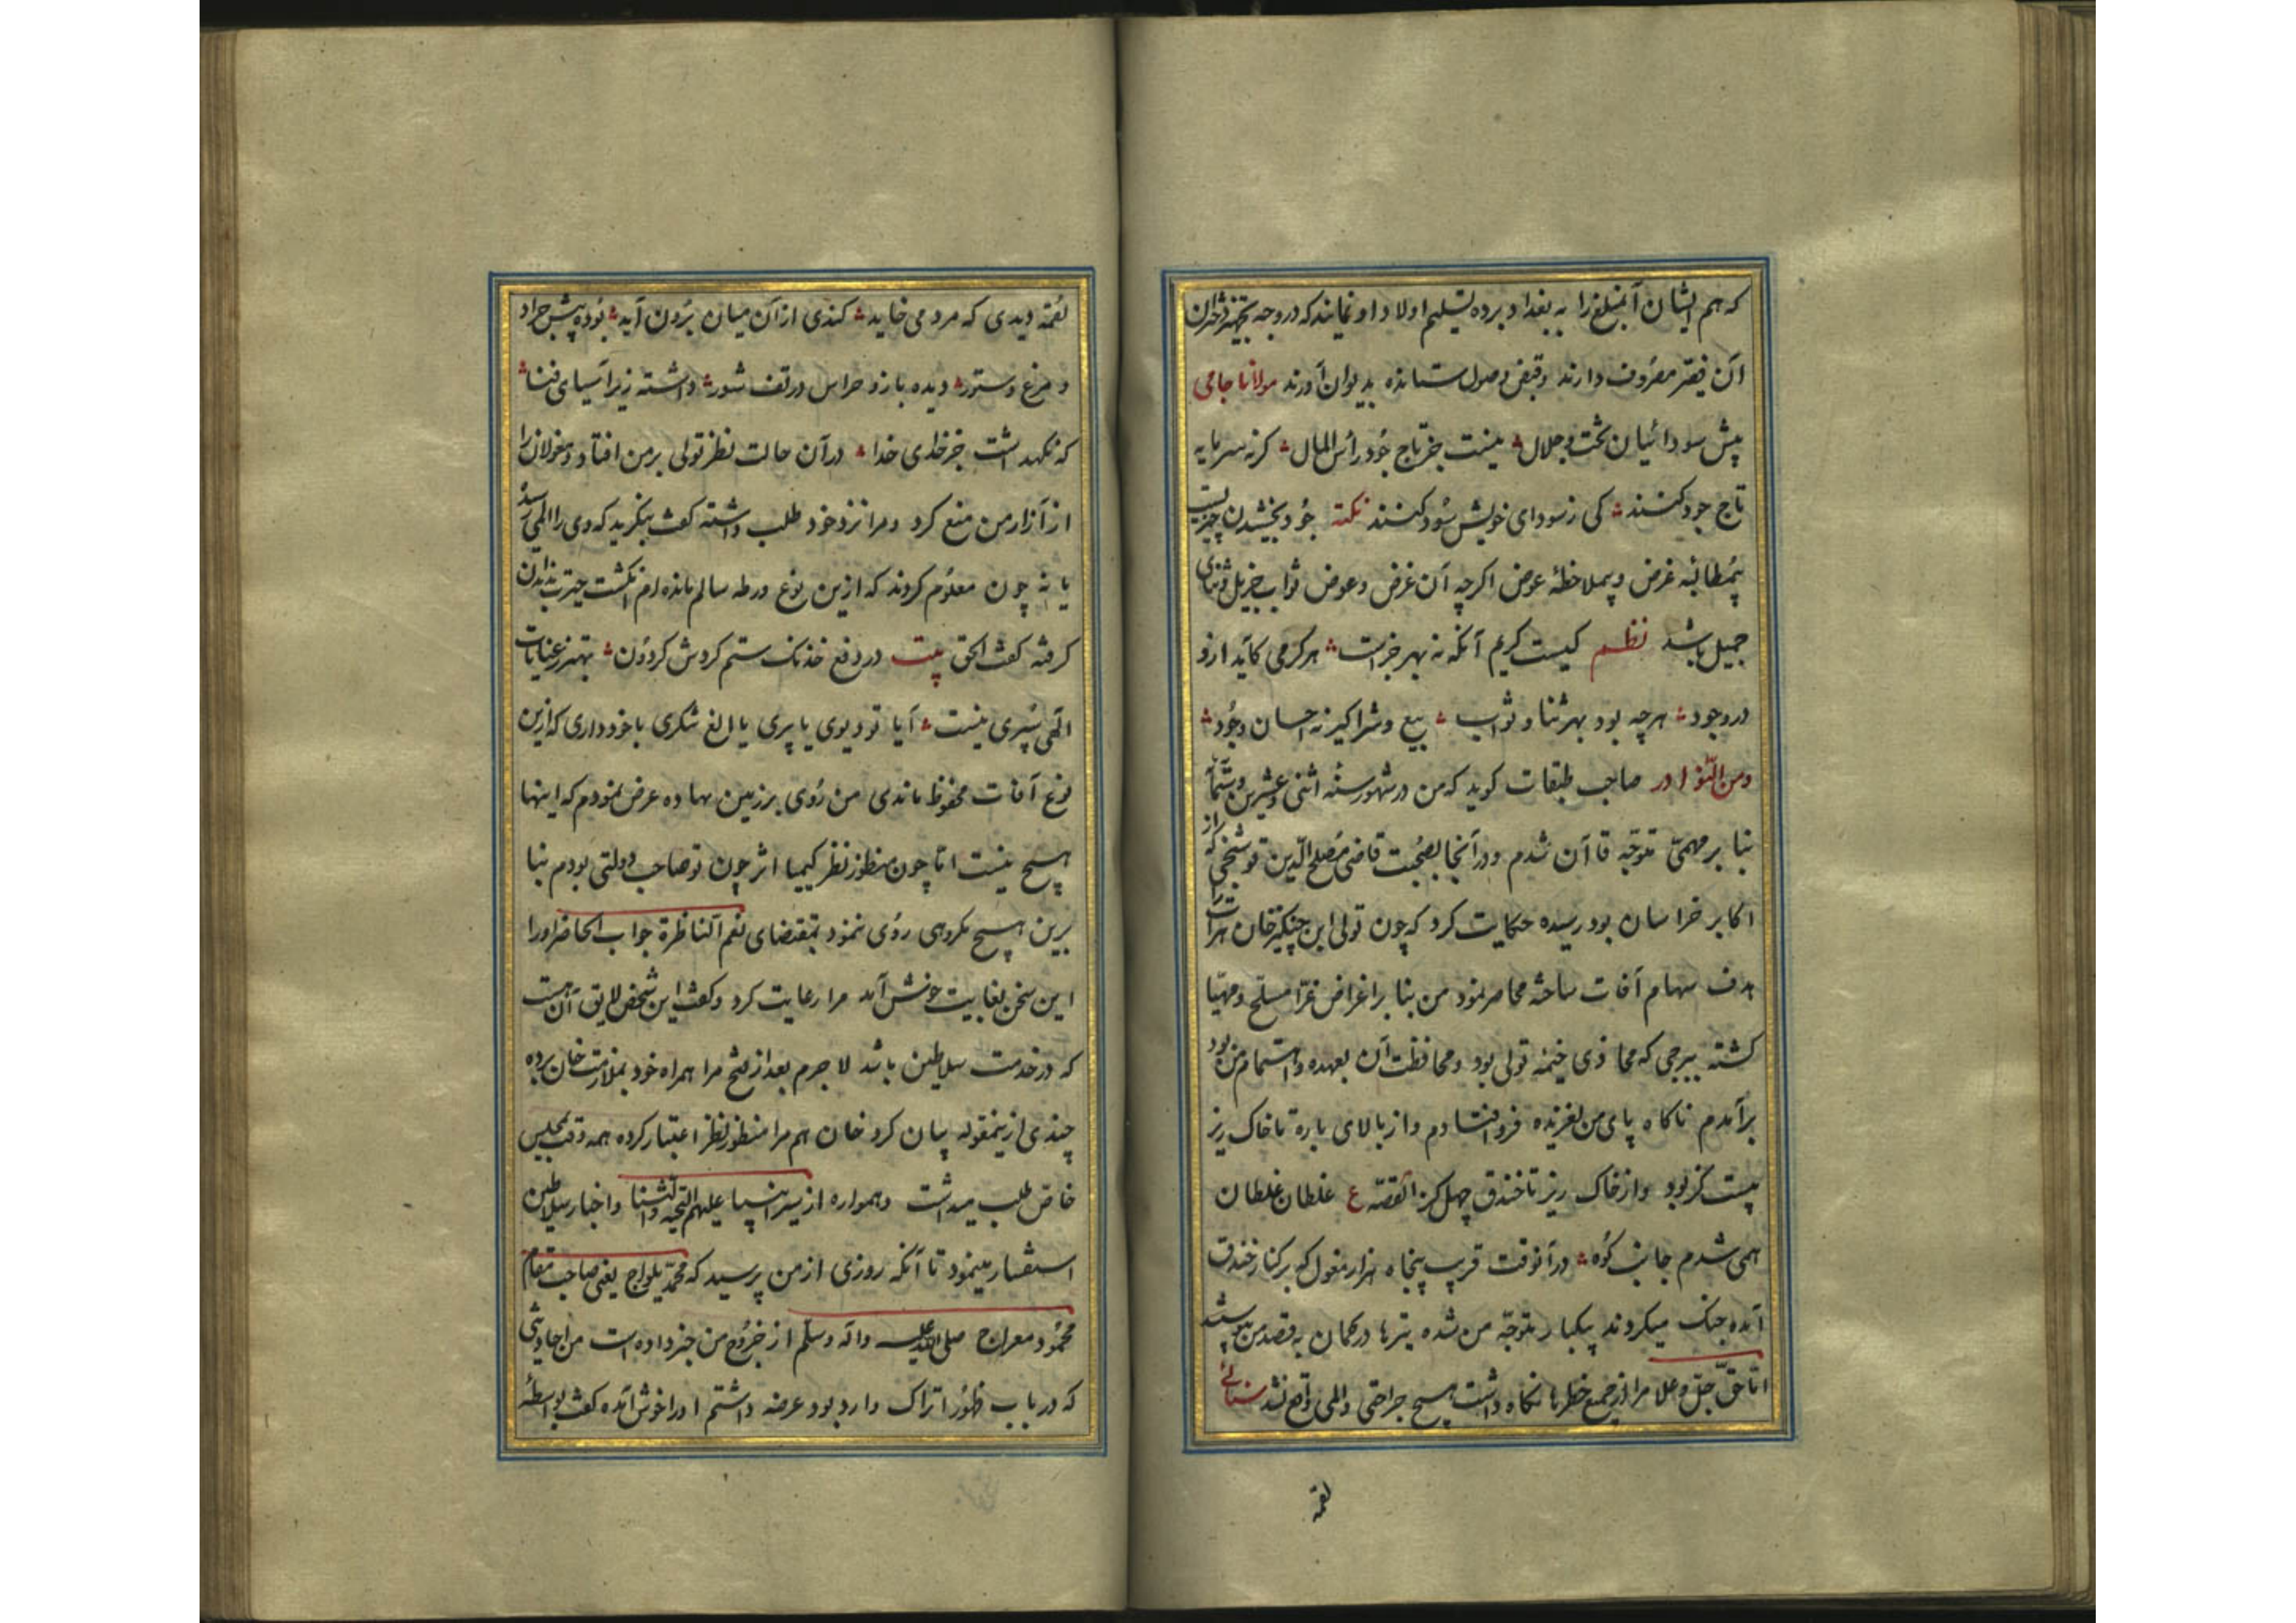 که هم ایشان آنمبلغ را به بغداد برده تسلیم اولاد او نمایند که در وجه تجهیز دختران
آن فقیر مصروف دارند وقبض وصول ستانده بدیوان آورند مولانا جامی
پیش سودائیان تخت وجلال نیست جز تاج جود رأس المال کرنه سرمایه
تاج جود کنند کی ز سودای خویش سود کنند نکته جود بخشیدن چیزیست
بیمطالبه غرض وبیملاحظهٔ عوض اکرچه آن غرض وعوض ثواب جزیل وثنای
جمیل باشد نظم کیست کریم آنکه نه بهر جزاست هر کرمی کاید ازو
در وجود هرچه بود بهر ثنا وثواب بیع وشرا کیر نه احسان وجود
ومن النوادر صاحب طبقات کوید که من در شهور سنه اثنی وعشرین وستمأ
بنا بر مهمی متوجه قاآن شدم ودر آنجا بصحبت قاضی مصلح الدین که از
اکابر خراسان بود رسیده حکایت کرد که چون تولی ابن چنکیزخان هرات را
هدف سهام آفات ساخته محاصر نمود من بنا بر اغراض غزا مسلح ومهیا
کشته ببرجی که محاذی خیمه تولی بود ومحافظت آن بعهده واهتمام من بود
برآمدم ناکاه پای من لغزیده فرو افتادم واز بالای باره تا خاک ریز
بیست کز بود واز خاک ریز تا خندق چهل کز القصه ع غلطان غلطان
همی شدم جانب کوه در آنوقت قریب پنجاه هزار مغول که بر کنار خندق
آمده جنک میکردند بیکبار متوجه من شده تیرها در کمان بقصد من پیوستند
اما حق جل وعلا مرا از جمیع خطرها نکاه داشت هیچ جراحتی والمی واقع نشد سنائی
لقمه
لقمه دیدی که مرد می خاید کندی از آن میان برون آید بوده پیش جراد
ومرغ وستور دیده بازو حراس در تف شور داشته زیر آسیای فنا
که نکهداشت جز خدای خدا در آن حالت نظر تولی بر من افتاد ومغولانرا
از آزار من منع کرد ومرا نزد خود طلب داشته کفت بنکرید که وی را المی رسد
یا نه چون معلوم کردند که ازین نوع ورطه سالم مانده ام انکشت حیرت بدندان
کرفته کفت الحق بیت در دفع خدنک ستم کردش کردون بهتر ز عنایات
الهی سپری نیست آیا تو دیوی یا پری یا الغ تنکری با خود داری که ازین
نوع آفات محفوظ ماندی من روی بر زمین نهاده عرض نمودم که اینها
هیچ نیست اما چون منظور نظر کیمیا اثر چون تو صاحب دولتی بودم بنا
برین هیچ مکروهی روی ننمود بمقتضای نعم الناظرة جواب الحاضر اورا
این سخن بغایت خوش آمد مرا رعایت کرد وکفت این شخص لایق آن هست
که در خدمت سلاطین باشد لا جرم بعد از فتح مرا همراه خود بملازمت خان برده
چندی ازینمقوله بیان کرد خان هم مرا منظور نظر اعتبار کرده همه وقت بمجلس
خاص طلب میداشت وهمواره از سیر انبیا علیهم التحیه والثنا واخبار سلاطین
استفسار مینمود تا آنکه روزی از من پرسید که محمد یلواج یعنی صاحب مقام
محمود ومعراج صلی الله علیه وآله وسلم از خروج من خبر داده است من احادیثی
که در باب ظهور اتراک وارد بود عرضه داشتم اورا خوش آمده کفت بواسطهٔ